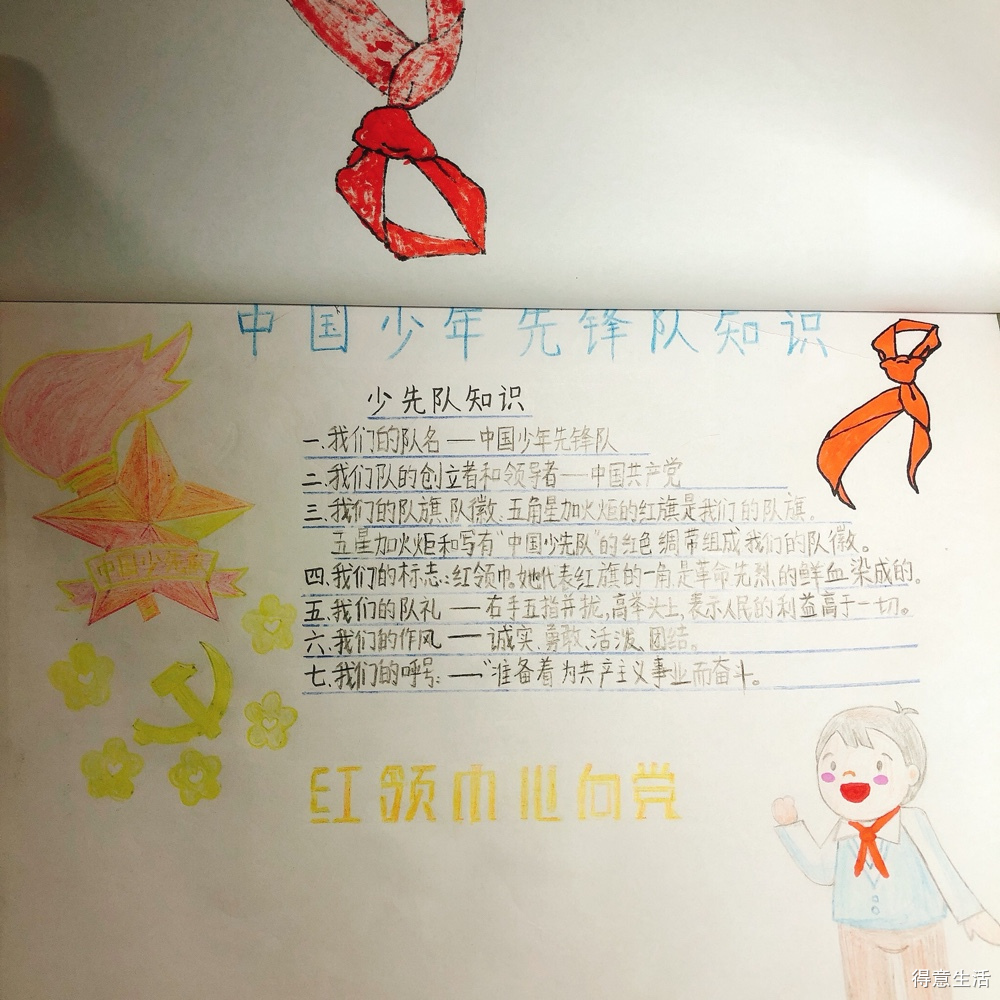 中国少年先锋队知识
少先队知识
一.我们的队名——中国少年先锋队
二.我们队的创立者和领导者——中国共产党
三.我们的队旗、队徽:五角星加火炬的红旗是我们的队旗。
五星加火炬和写有“中国少先队”的红色绸带组成我们的队徽。
四.我们的标志:红领巾。她代表红旗的一角是革命先烈的鲜血染成的。
五.我们的队礼——右手五指并拢,高举头上,表示人民的利益高于一切。
六.我们的作风——诚实、勇敢、活泼、团结。
七.我们的呼号:——“准备着为共产主义事业而奋斗。
中国少先队
红领巾心向党
得意生活